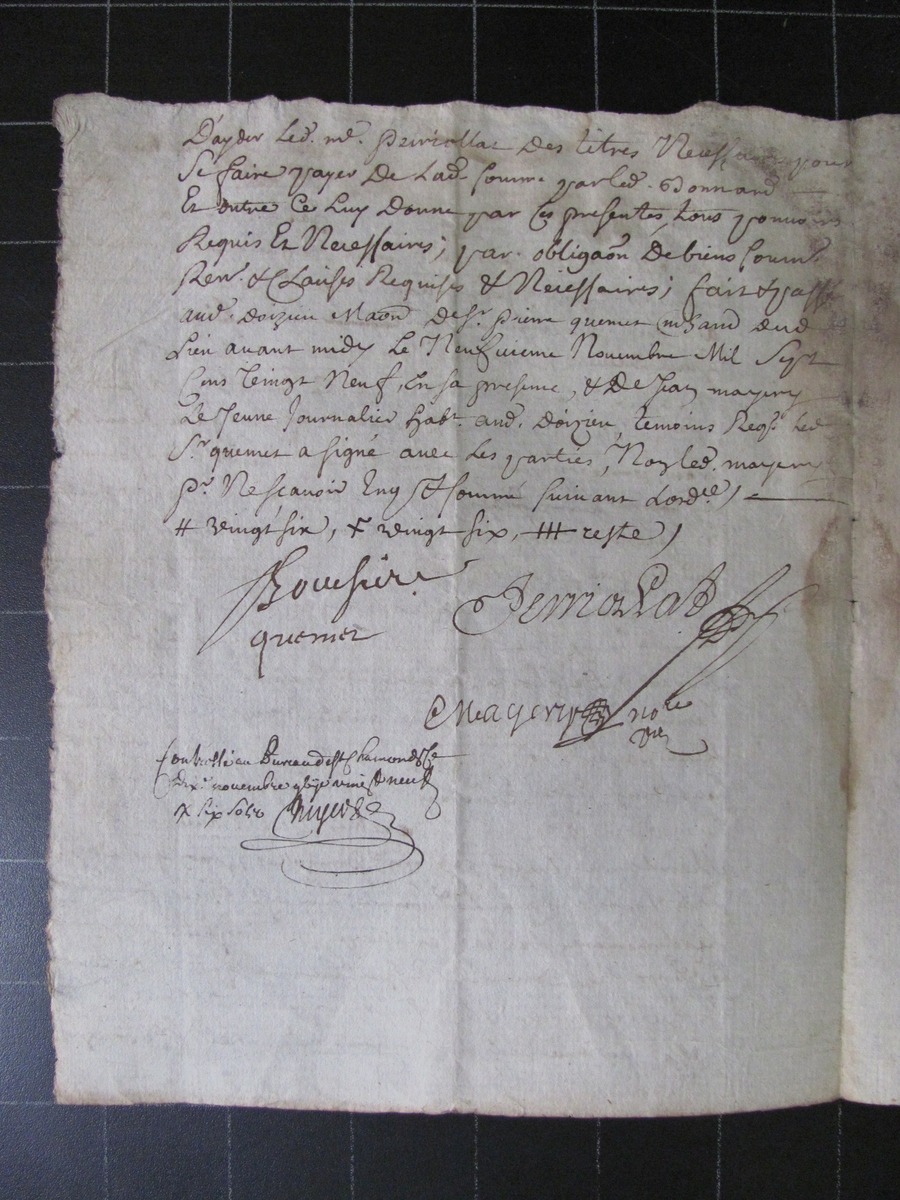 D'ayder led. me. perriollat Des titres Necessaires pour
Se faire payer De Lad. somme par led. Bonnard
Et outre Ce Luy Donne par Ces presentes, tous pouvoirs
Requis Et Necessaires; par obligaon De biens soum.
Ren. & Clauses Requises & Neiessaires; fait & passé
aud. doizieu Maon De Sr. pierre quemet mchand dud.
Lieu avant midy Le Neufvieme Novembre Mil Sept
Cens Vingt Neuf, En sa presence, & De Jean mayery
Le Jeune Journalier habt. aud. doizieu, temoins Reqs. Led.
Sr. quemet a signé avec Les parties, Non led. mayery
pr. Ne scavoir Enq. & sommé suivant Lord.ce /
# vingt six, + vingt six, ### reste /
quemet
Perriollat
Mayery nore
Controllé au Bureau de St Chamond Le
dix.e novembre vingt neuf
R six sols